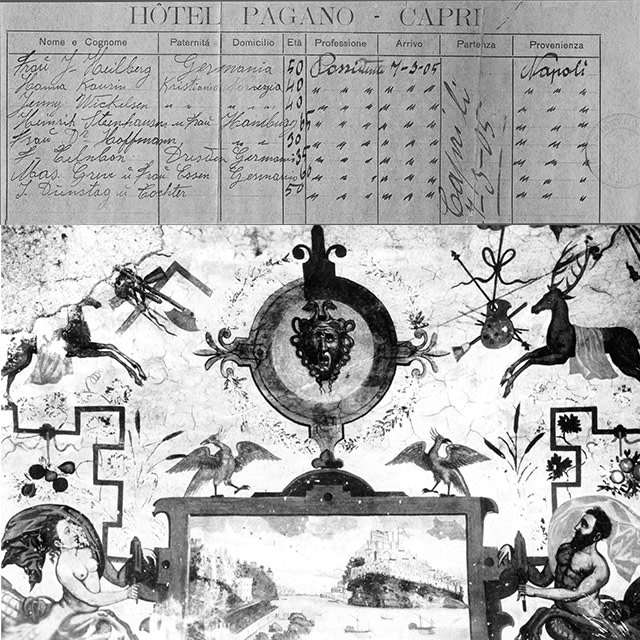 HÔTEL PAGANO - CAPRI
Nome e Cognome Paternità Domicilio Età Professione Arrivo Partenza Provenienza
Frau J. Heilberg Germania 50 Possidente 7-5-05 Napoli
Hanna Kristiania Norvegia 40 " " " " " "
Jenny Mickelsen " " " " 40 " " " " " "
Heinrich Steinhauser u Frau Hamburg " " " " " "
Frau Dr Hoffmann " " 50 " " " " " "
Dresden Germania 35 " " " " " "
Max Greve u Frau Essen Germania " " " " " "
J. Dünstag u Tochter 50 " " " " " "
Capri li
7-5-05